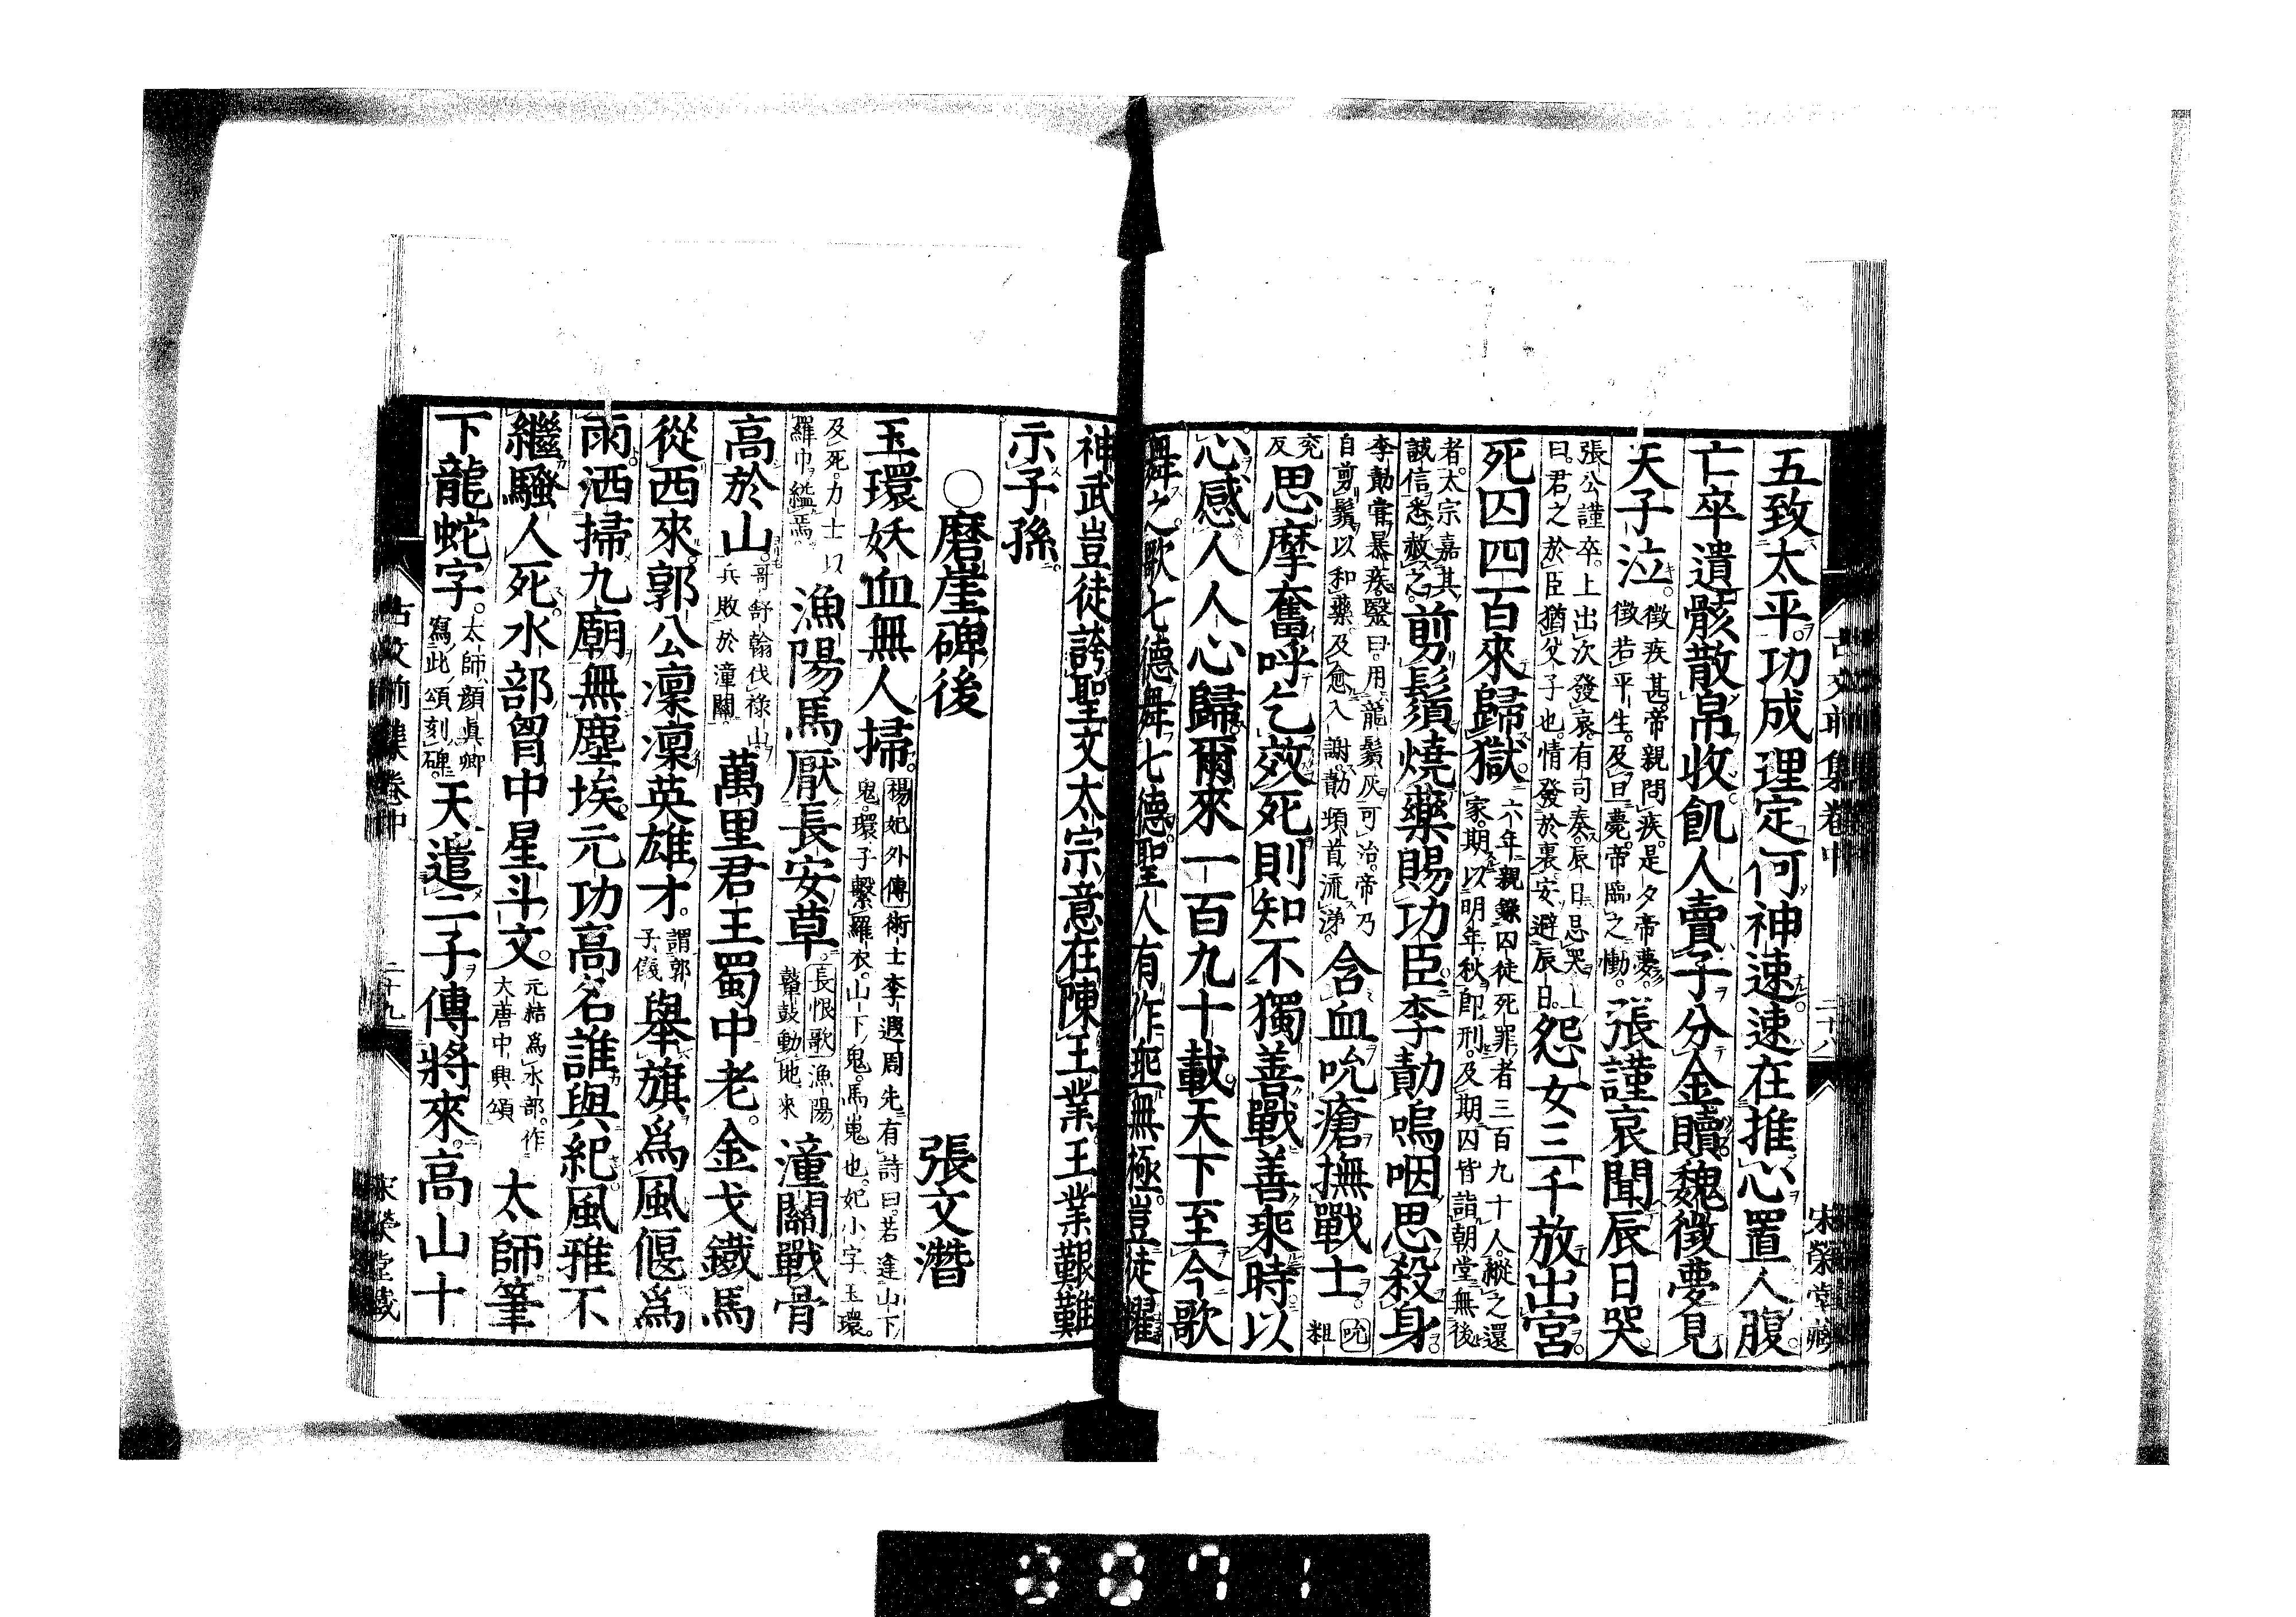 古文前集卷中
二十八
宋榮堂藏
五致太平功成理定何神速速在推心置人腹
亡卒遺骸散帛收飢人賣子分金贖魏徵夢見
天子泣徵疾甚帝親問疾是夕帝夢徵若平生及旦薨帝臨之慟張謹哀聞辰日哭
張公謹卒上出次發哀有司奏辰日忌哭上曰君之於臣猶父子也情發於裏安避辰日怨女三千放出宮
死囚四百來歸獄六年親錄囚徒死罪者三百九十人縱之還家期以明年秋卽刑及期囚皆詣朝堂無後
者太宗嘉其誠信悉赦之剪鬚燒藥賜功臣李勣嗚咽思殺身
李勣嘗暴疾醫曰用龍鬚灰可治帝乃自剪鬚以和藥及愈入謝勣頓首流涕含血吮瘡撫戰士吮粗
兗反思摩奮呼乞效死則知不獨善戰善乘時以
心感人人心歸爾來一百九十載天下至今歌
舞之歌七德舞七德聖人有作垂無極豈徒耀
神武豈徒誇聖文太宗意在陳王業王業艱難
示子孫
○磨崖碑後 張文潛
玉環妖血無人掃楊妃外傳術士李遐周先有詩曰若逢山下鬼環子繫羅衣山下鬼馬嵬也妃小字玉環
及死力士以羅巾縊焉漁陽馬厭長安草長恨歌漁陽鼙鼓動地來潼關戰骨
高於山哥舒翰伐祿山兵敗於潼關萬里君王蜀中老金戈鐵馬
從西來郭公凜凜英雄才謂郭子儀舉旗爲風偃爲
雨洒掃九廟無塵埃元功高名誰與紀風雅不
繼騷人死水部胷中星斗文元結爲水部作大唐中興頌太師筆
下龍蛇字太師顏眞卿寫此頌刻碑天遣二子傳將來高山十
古文前集卷中
二十九
宋榮堂藏
0071